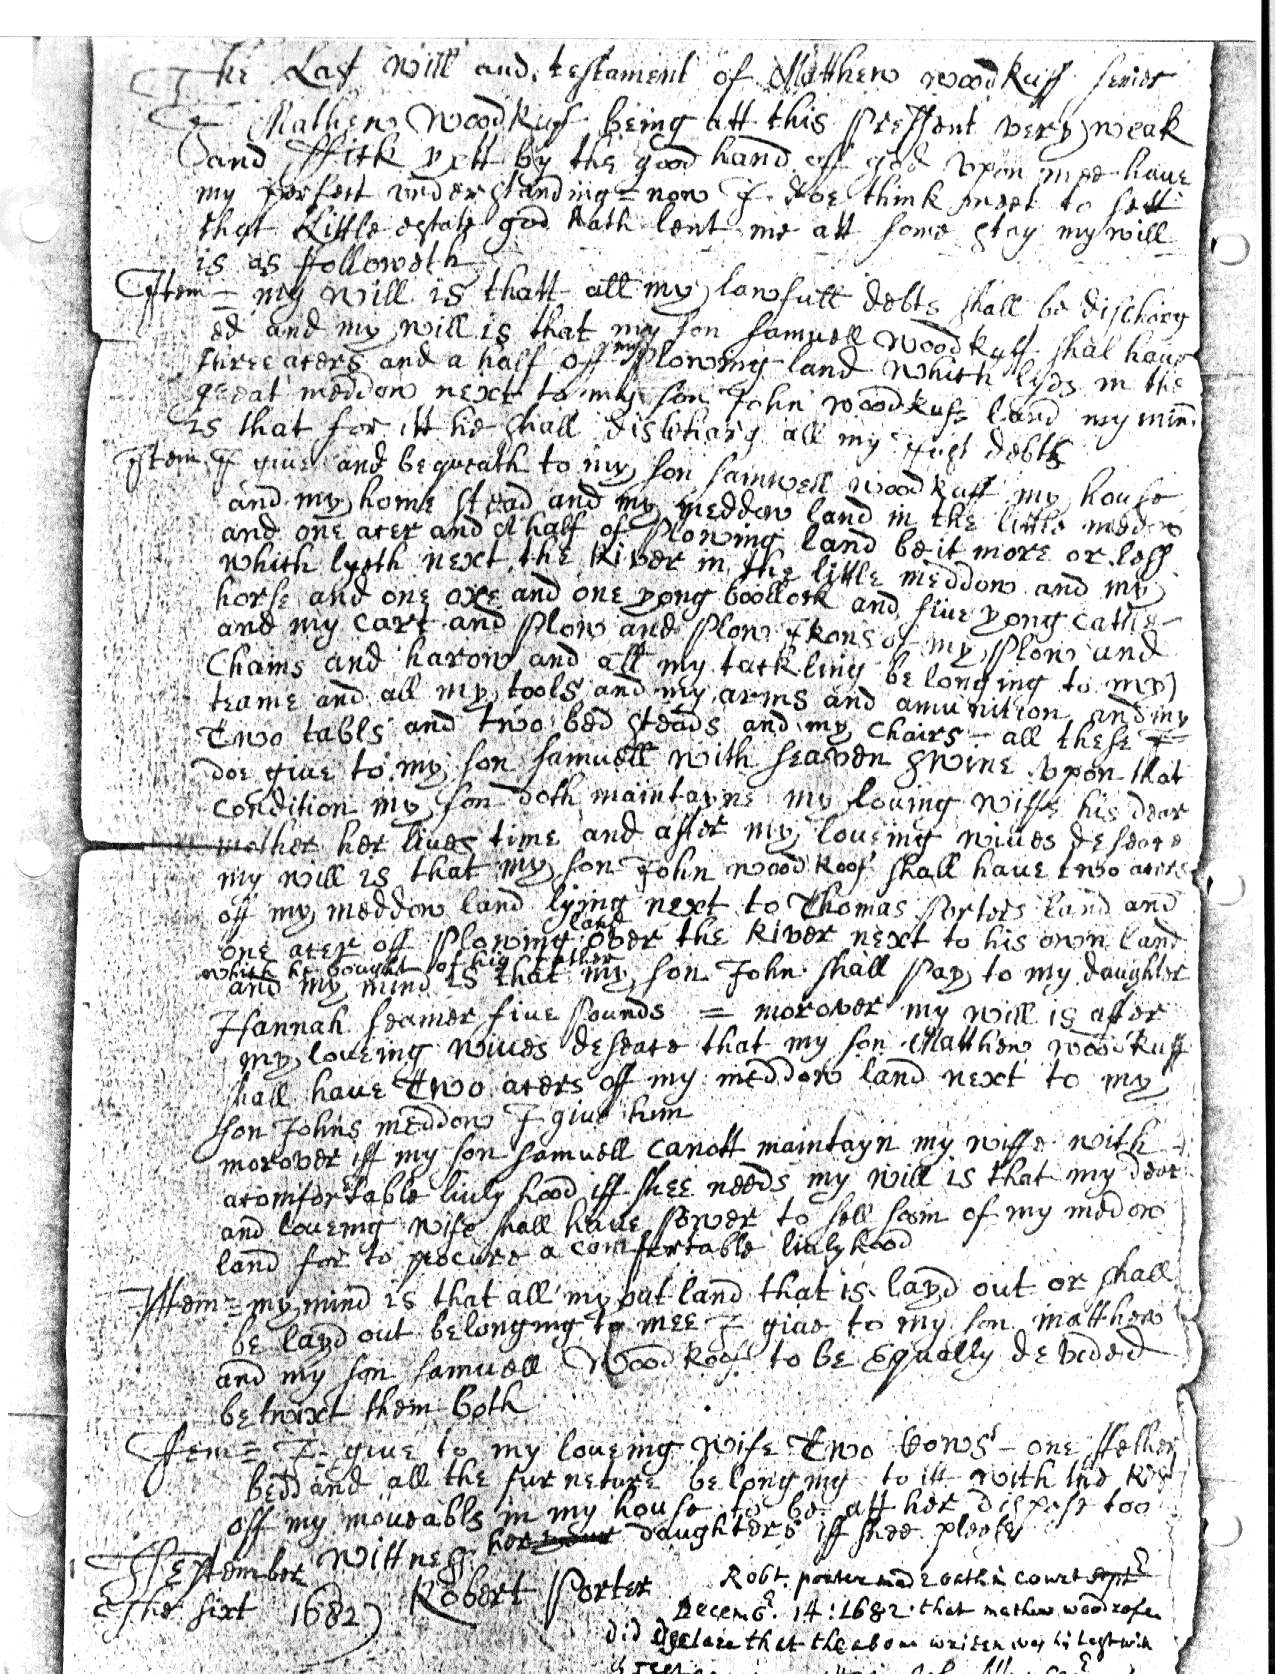 The Last will and testament of Matthew Woodkuff senier
I Mathew Woodkuff being att this pressent very weak
and sick yett by the good hand off god vpon mee have
my perfect vnderstanding = now I doe think meet to sett
that Little estate god hath lent me att some stay my will
is as ffolloweth
Item = my will is thatt all my lawfull debts shall be discharg
ed and my will is that my son samuell Woodkuff shal haue
three acers and a half off my plowing land which lyes in the
great meddow next to my son John woodkuff land my mind
is that for itt he shall discharg all my just debts
Item I give and bequeath to my son samwell woodkuff my house
and my home stead and my meddow land in the little meddow
and one acer and A half of plowing land be it more or less
which lyeth next the River in the little meddow and my
horse and one oxe and one yong boollock and five yong cattle
and my cart and plow and plow Irons of my plow and
Chains and harow and all my tackling belonging to my
teame and all my tools and my arms and amunition and my
Two tabls and two bed steads and my chairs - all these I
doe give to my son samuell with seaven swine vpon that
condition my son doth maintayne my loving wiffe his dear
mother her lives time and after my loveing wives deseace
my will is that my son John woodkoof shall have two acers
off my meddow land lying next to Thomas porters land and
one acer off plowing land over the River next to his own land
which he bought of his father
and my mind is that my son John shall pay to my daughter
Hannah seamer five pounds = morover my will is after
my loveing wives deseace that my son Matthew woodkuff
shall have Two acers off my meddow land next to my
son Johns meddow I give him
morover iff my son samuell canott maintayn my wiffe with
acomfortable livlyhood iff shee needs my will is that my dear
and loveing wife shall have power to sell som of my medow
land for to procure a comfortable livlyhood
Ittem = my mind is that all my out land that is layd out or shall
be layd out belonging to mee I give to my son matthew
and my son samuell Woodkoof to be Equally devided
betwixt them both
Item = I give to my loveing wife Two Cows - one ffether
bedd and all the furneture belonging to itt with the
off my moveabls in my house to be att her dispose too
her daughters iff shee please
September wittness
the sixt 1682) Robert Porter
Robt. porter made oath in court
Decemb. 14: 1682 that mathew woodrofe
did declare that the above writen was his last will